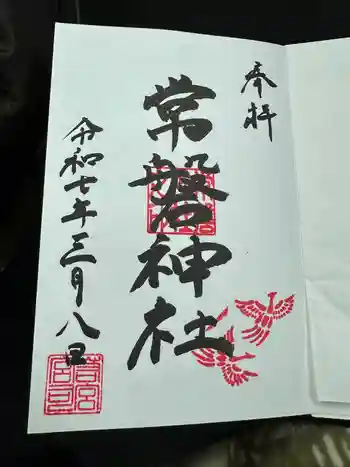 奉拝
常磐神社
令和七年三月八日